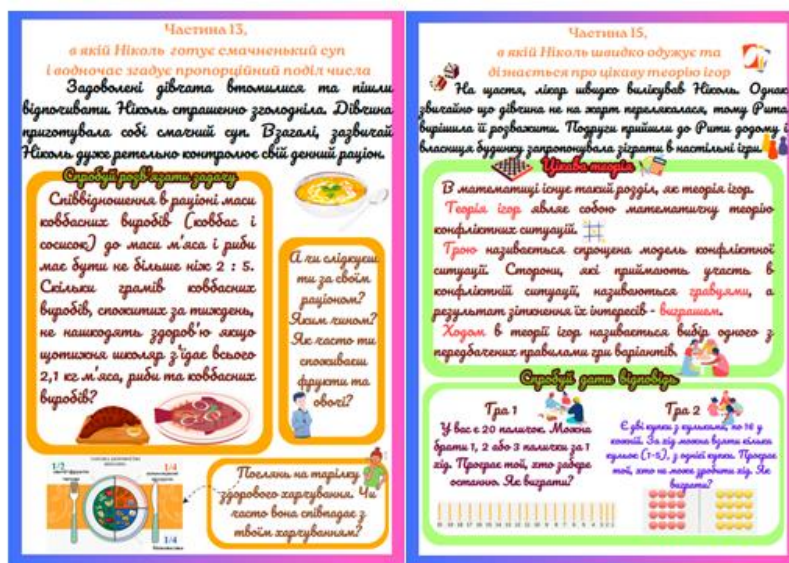 Частина 13,
в якій Ніколь готує смачненький суп
і водночас згадує пропорційний поділ числа
Задоволені дівчата втомилися та пішли
відпочивати. Ніколь страшенно зголодніла. Дівчина
приготувала собі смачний суп. Взагалі, зазвичай
Ніколь дуже ретельно контролює свій денний раціон.
Спробуй розв'язати задачу
Співвідношення в раціоні маси
ковбасних виробів (ковбас і
сосисок) до маси м'яса і риби
має бути не більше ніж 2 : 5.
Скільки грамів ковбасних
виробів, спожитих за тиждень,
не нашкодять здоров'ю якщо
щотижня школяр з'їдає всього
2,1 кг м'яса, риби та ковбасних
виробів?
А чи слідкуєш
ти за своїм
раціоном?
Яким чином?
Як часто ти
споживаєш
фрукти та
овочі?
1/2
1/4
1/4
Поглянь на тарілку
здорового харчування. Чи
часто вона співпадає з
твоїм харчуванням?
Частина 15,
в якій Ніколь швидко одужує та
дізнається про цікаву теорію ігор
На щастя, лікар швидко вилікував Ніколь. Однак
звичайно що дівчина не на жарт перелякалася, тому Рита
вирішила її розважити. Подруги прийшли до Рити додому і
власниця будинку запропонувала зіграти в настільні ігри.
Цікава теорія
В математиці існує такий розділ, як теорія ігор.
Теорія ігор являє собою математичну теорію
конфліктних ситуацій.
Грою називається спрощена модель конфліктної
ситуації. Сторони, які приймають участь в
конфліктній ситуації, називаються гравцями, а
результат зіткнення їх інтересів - виграшем.
Ходом в теорії ігор називається вибір одного з
передбачених правилами гри варіантів.
Спробуй дати відповідь
Гра 1
У вас є 20 паличок. Можна
брати 1, 2 або 3 палички за 1
хід. Програє той, хто забере
останню. Як виграти?
Гра 2
Є дві купки з кульками, по 16 у
кожній. За хід можна взяти кілька
кульок (1-5), з однієї купки. Програє
той, хто не може зробити хід. Як
виграти?